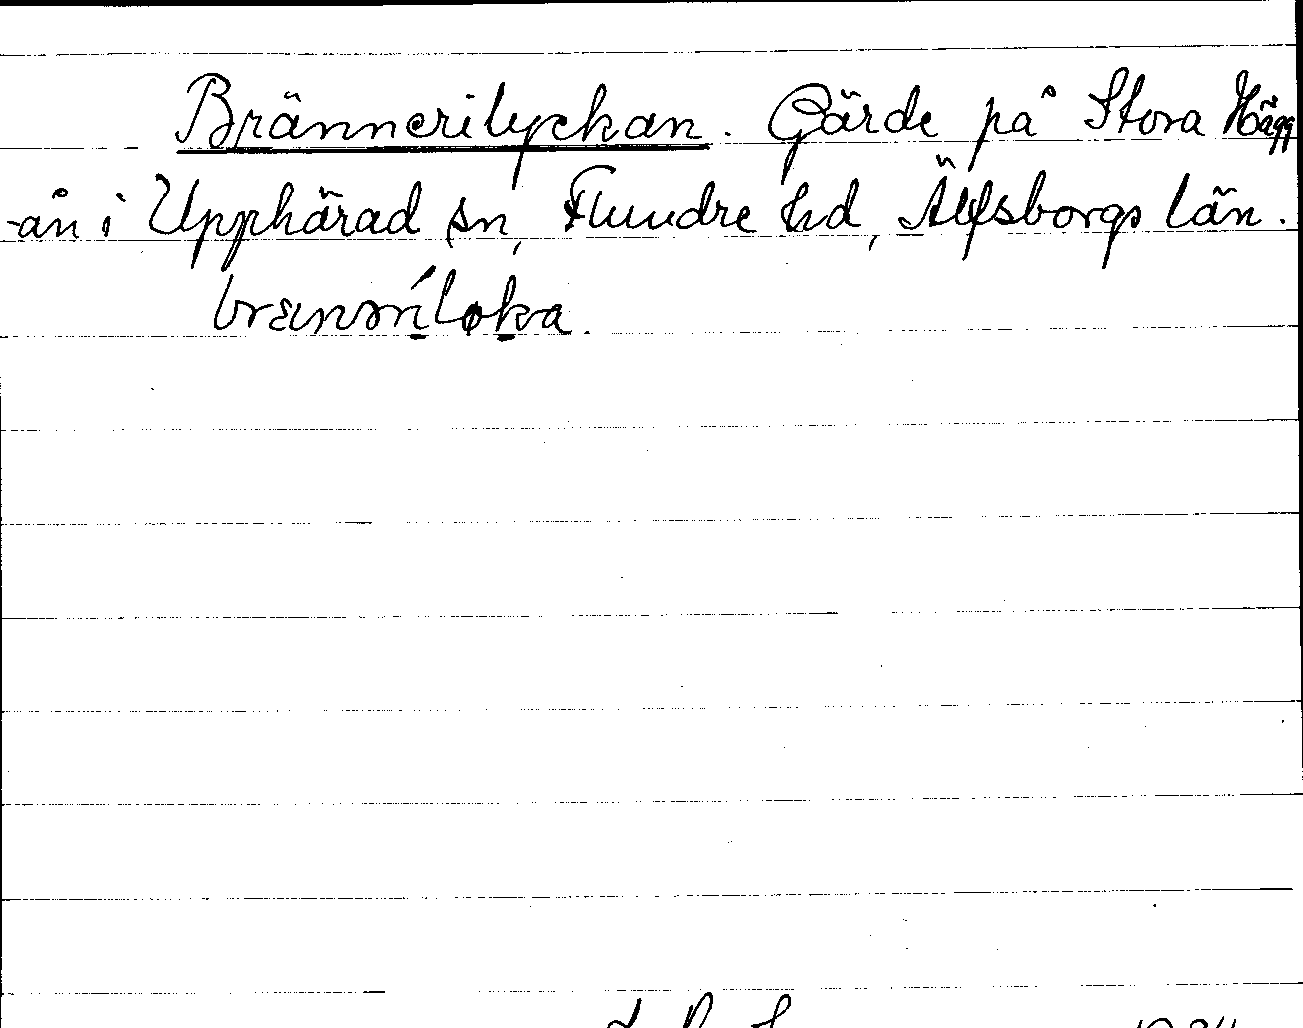 Brännerilyckan. Gärde på Stora Hägg
-ån i Upphärad sn, Flundre hd, Älfsborgs län.